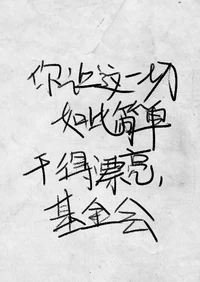 你让这一切
如此简单
干得漂亮，
基金会